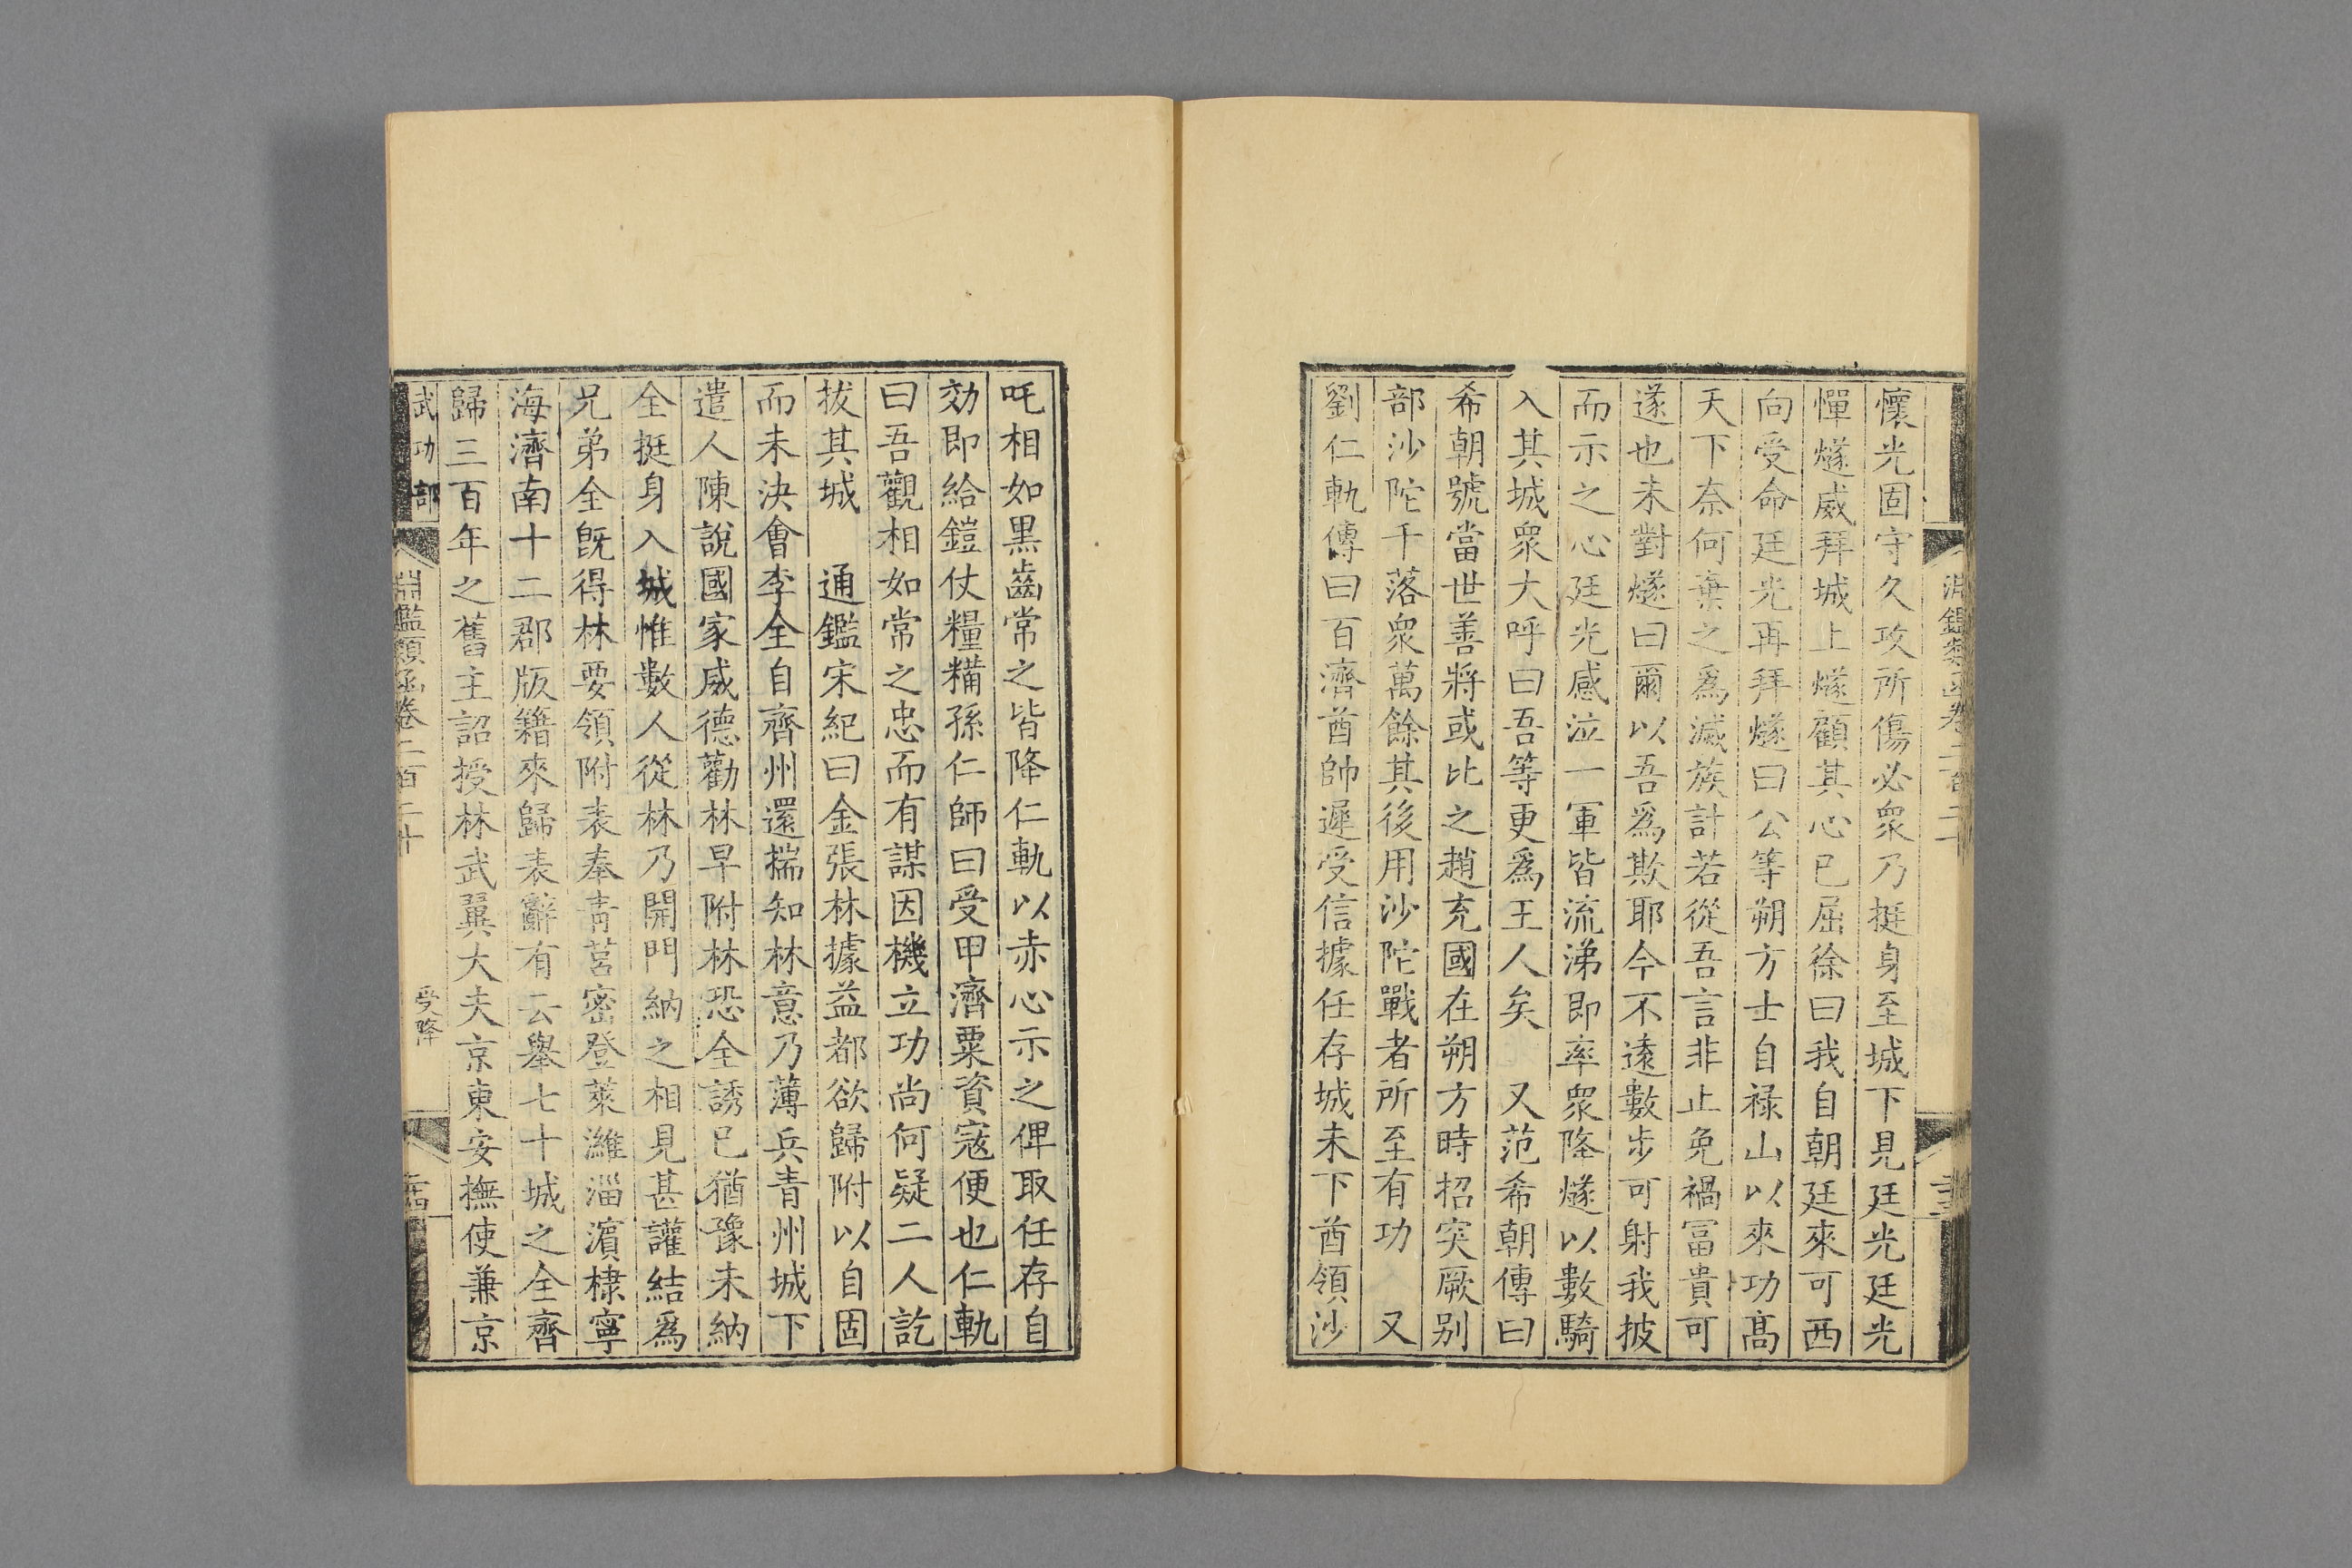 懷光固守久攻所傷必衆乃挺身至城下見廷光廷光
憚燧威拜城上燧顧其心已屈徐曰我自朝廷來可西
向受命廷光再拜燧曰公等朔方士自祿山以來功髙
天下奈何棄之爲滅族計若從吾言非止免禍冨貴可
遂也未對燧曰爾以吾爲欺耶今不逺數步可射我披
而示之心廷光感泣一軍皆流涕即率衆降燧以數騎
入其城衆大呼曰吾等更爲王人矣　又范希朝傳曰
希朝號當世善將或比之趙充國在朔方時招突厥别
部沙陀千落衆萬餘其後用沙陀戰者所至有功　又
劉仁軌傳曰百濟酋帥遲受信據任存城未下酋領沙
吒相如黒齒常之皆降仁軌以赤心示之俾取任存自
効即給鎧仗糧糒孫仁師曰受甲濟粟資寇便也仁軌
曰吾觀相如常之忠而有謀因機立功尚何疑二人訖
拔其城　通鑑宋紀曰金張林據益都欲歸附以自固
而未決會李全自齊州還揣知林意乃薄兵青州城下
遣人陳說國家威德勸林早附林恐全誘已猶豫未納
全挺身入城惟數人從林乃開門納之相見甚讙結爲
兄弟全旣得林要領附表奉青莒密登萊濰淄濱棣寧
海濟南十二郡版籍來歸表辭有云舉七十城之全齊
歸三百年之舊主詔授林武翼大夫京東安撫使兼京
武功部
淵鑑類函卷二百二十
受降